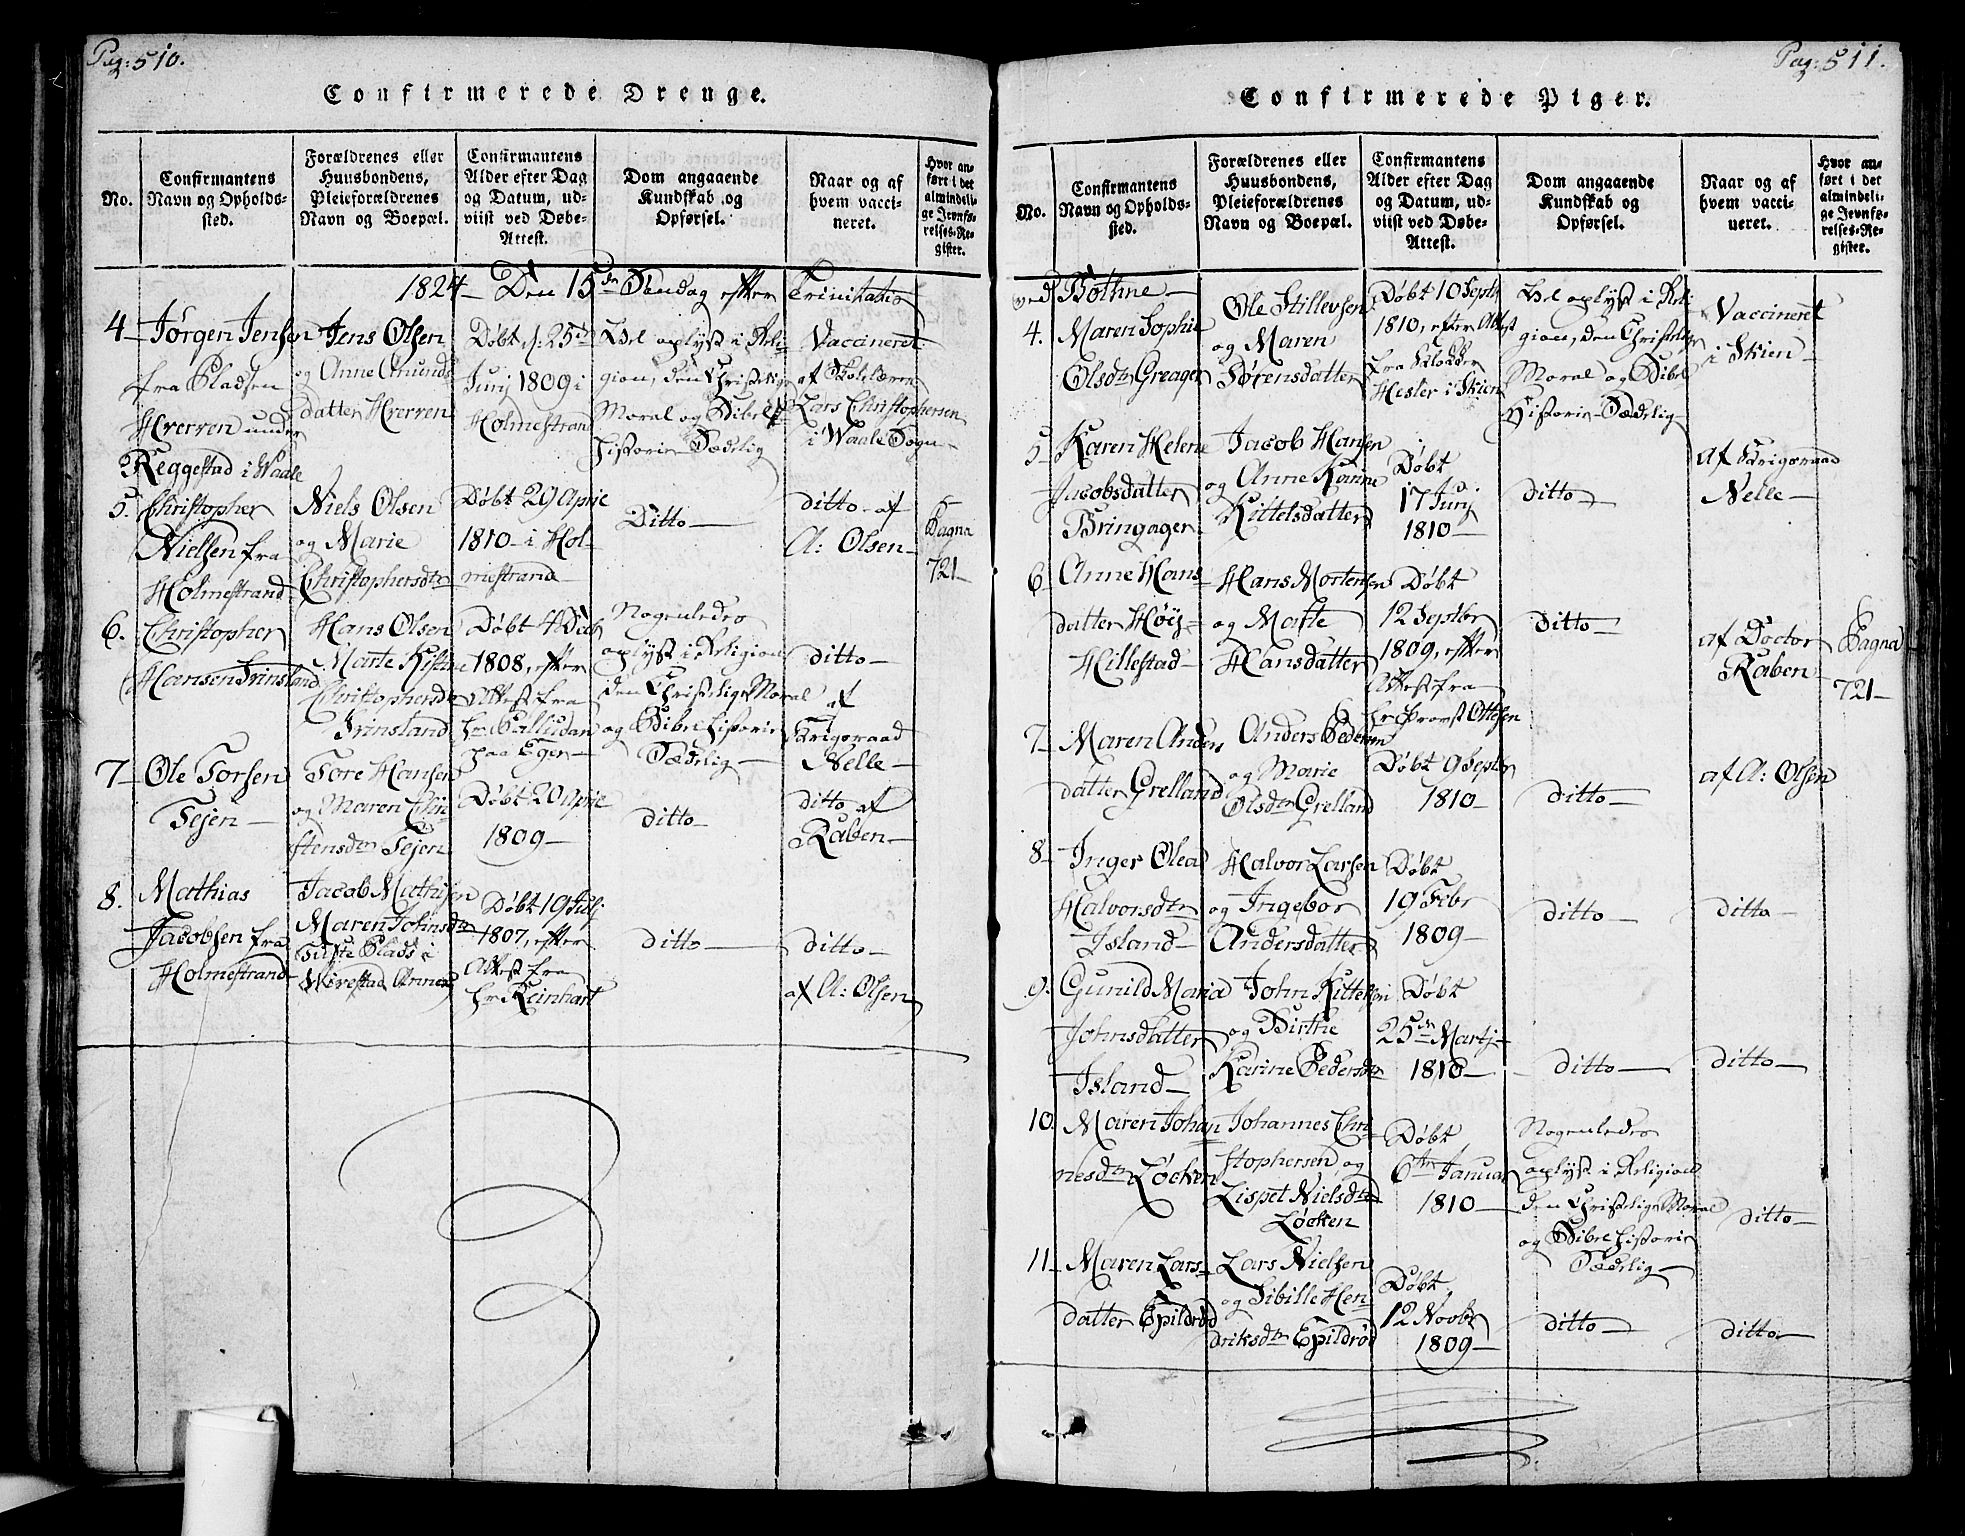 Pag: 510.
Confirmerede Drenge.
No.
Confirmantens
Navn og Opholds-
sted.
Forældrenes eller
Huusbondens,
Pleieforældrenes
Navn og Boepæl.
Confirmantens
Alder efter Dag
og Datum, ud-
viist ved Døbe-
Attest.
Dom angaaende
Kundskab og
Opførsel.
Naar og af
hvem vacci-
neret.
Hvor an-
ført i det
almindeli-
ge Jevnfø-
relses-Re-
gister.
1824 Den 15de Søndag efter Trinitatis
4 Jørgen Jensen
fra Pladsen
Hverven under
Reggestad i Waale
Jens Olsen
og Anne Amunds
datter Hverven
Døbt d: 25de
Junj 1809 i
Holmestran
Vel oplyst i Reli
gion, den Christelige
Moral og Bibel
historie Sædelig
Vaccineret
af Skolelærer
Lars Christophersen
i Waale Sogn
5. Christopher
Nielsen fra
Holmestrand
Niels Olsen
og Marie
Christophersdtr
Døbt 29 Aprie
1810 i Hol
mestrand
Ditto
ditto af
A: Olsen
Pagna
721
6. Christopher
Hansen Frinsland
Hans Olsen
Marte Kistine
Christophersdr
Frinsland
Døbt 4 Dec
1808, efter
Attest fra
Hr Palludan
paa Eger
Nogenledes
oplyst i Religion
den Christelige Moral
og Bibelhistorie
Sædelig
ditto
af
Krigsraad
Nelle
7 Ole Torsen
Tejen
Tore Hansen
og Maren Chri
stensdtr Tejen
Døbt 20 Aprie
1809
ditto
ditto af
Raben
8. Mathias
Jacobsen fra
Holmestrand
Jacob Mathisen
Maren Johnsdtr
Tufte Plads i
Wirestad Annex
Døbt 19 Julj
1807, efter
Attest fra
Hr Reinhart
ditto
ditto
af A: Olsen
Pag: 511.
Confirmerede Piger.
No.
Confirmantens
Navn og Opholds-
sted.
Forældrenes eller
Huusbondens,
Pleieforældrenes
Navn og Boepæl.
Confirmantens
Alder efter Dag
og Datum, ud-
viist ved Døbe-
Attest.
Dom angaaende
Kundskab og
Opførsel.
Naar og af
hvem vacci-
neret.
Hvor an-
ført i det
almindeli-
ge Jevnfø-
relses-Re-
gister.
ved Bothne
4. Maren Sophie
Olsdtr Greager
Ole Stillevsen
og Maren
Sørensdatter
Døbt 10 Septb
1810, efter Attest
fra Klokker
Hesler i Skien
Vel oplyst i Reli
gion, den Christelige
Moral og Bibel
Historie Sædelig
Vaccineret
i Skien
5 Karen Helene
Jacobsdatter
Bringager
Jacob Hansen
og Anne Karine
Kittelsdatter
Døbt
17 Junj
1810
ditto
af Krigsraad
Nelle
6 Anne Hans
datter Høij
Hillestad
Hans Mortensen
og Marte
Hansdatter
Døbt
12 Septbr
1809, efter
Attest fra
Hr Provst Ottesen
ditto
af Doctor
Raben
Pagna
721
7 Maren Anders
datter Grelland
Anders Pedersen
og Marie
Olsdtr Grelland
Døbt 9 Septbr
1810
ditto
af A: Olsen
8 Inger Olea
Halvorsdtr
Island
Halvor Larsen
og Ingebor
Andersdatter
Døbt
19 Febr
1809
ditto
ditto
9. Gunild Maria
Johnsdatter
Island
John Kittelsen
og Birthe
Karine Pedersdtr
Døbt
25de Martj
1810
ditto
ditto
10. Maren Johan
nesdtr Løcken
Johannes Chri
stophersen og
Lispet Nielsdtr
Løcken
Døbt
6te Januar
1810
Nogenledes
oplyst i Religion
den Christelige Moral
og Bibelhistorie
Sædelig
ditto
11 Maren Lars
datter Epildrød
Lars Nielsen
og Sibille Hen
driksdtr Epildrød
Døbt
12 Novbr
1809
ditto
ditto